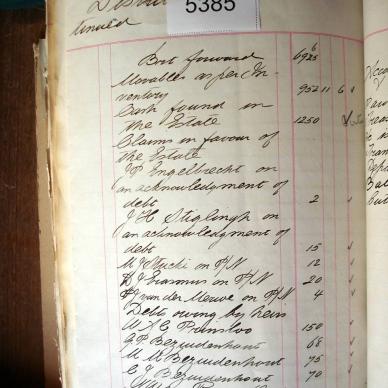 5385
tinued
Bort forward 6925
Movables as per In-
ventory 952 11 6
Cash found in
the Estate 1250
Claims in favour of
the Estate
J P Engelbrecht on
an acknowledgment of
debt 2
J H Stiglingh on
an acknowledgment of
debt 15
M J Stucki on P/N 12
D J Erasmus on P/N 20
P J van der Merwe on P/N 4
Debts owing by heirs
W A E Prinsloo 150
G P Bezuidenhout 68
M M Bezuidenhout 75
C J Bezuidenhout 70